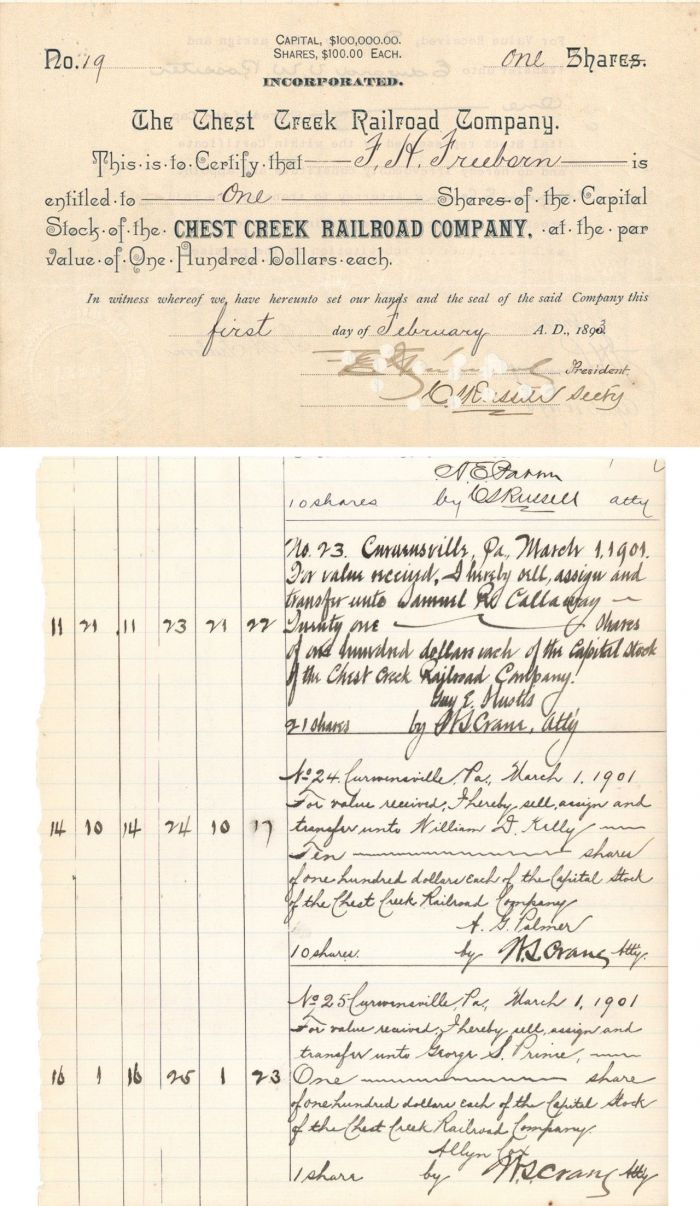 No. 19
CAPITAL, $100,000.00.
SHARES, $100.00 EACH.
One Shares.
INCORPORATED.
The Chest Creek Railroad Company.
This is to Certify that F. H. Freeborn is
entitled to One Shares of the Capital
Stock of the CHEST CREEK RAILROAD COMPANY, at the par
value of One Hundred Dollars each.
In witness whereof we have hereunto set our hands and the seal of the said Company this
first day of February A. D., 1893
President.
Secty
10 shares by C S Russell atty
No. 23. Curwensville, Pa., March 1, 1901.
For value received, I hereby sell, assign and
transfer unto Samuel R. Callaway
11 21 11 23 21 22 Twenty one shares
of one hundred dollars each of the Capital Stock
of the Chest Creek Railroad Company.
Guy E. Hustis
21 shares by W S Crane, Atty
No 24 Curwensville, Pa., March 1, 1901
For value received, I hereby sell, assign and
14 10 14 24 10 17 transfer unto William D. Kelly
Ten shares
of one hundred dollars each of the Capital Stock
of the Chest Creek Railroad Company
A. G. Palmer
10 shares. by W. S. Crane Atty.
No 25 Curwensville, Pa., March 1, 1901
For value received, I hereby sell, assign and
transfer unto George S. Prime,
16 1 16 25 1 23 One share
of one hundred dollars each of the Capital Stock
of the Chest Creek Railroad Company.
Allyn Cox
1 share by W. S. Crane Atty